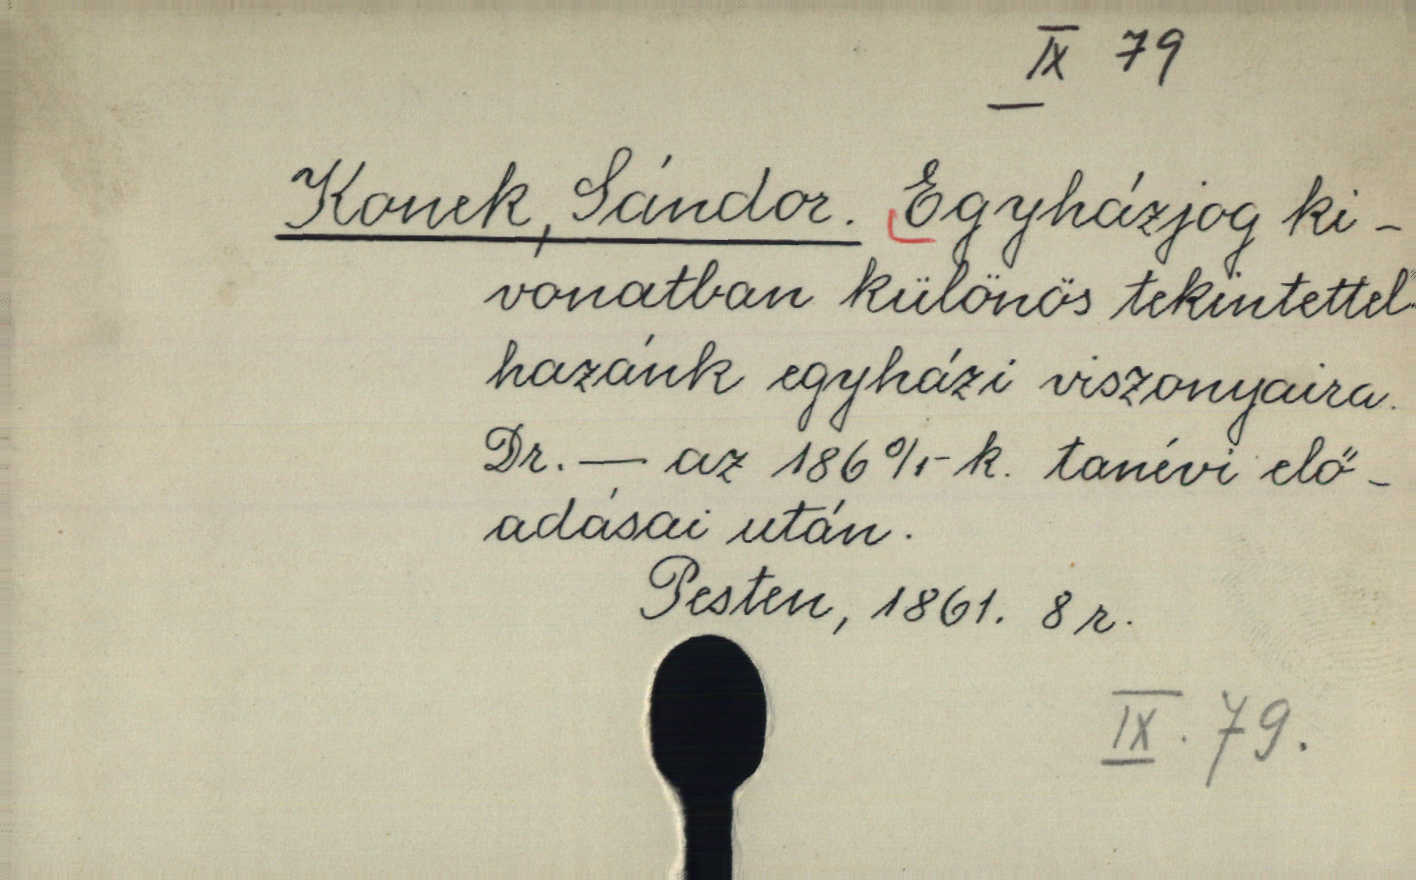 IX 79
Konek, Sándor. Egyházjog ki-
vonatban különös tekintettel
hazánk egyházi viszonyaira.
Dr. — az 186 0/1-k. tanévi elő-
adásai után.
Pesten, 1861. 8 r.
IX. 79.